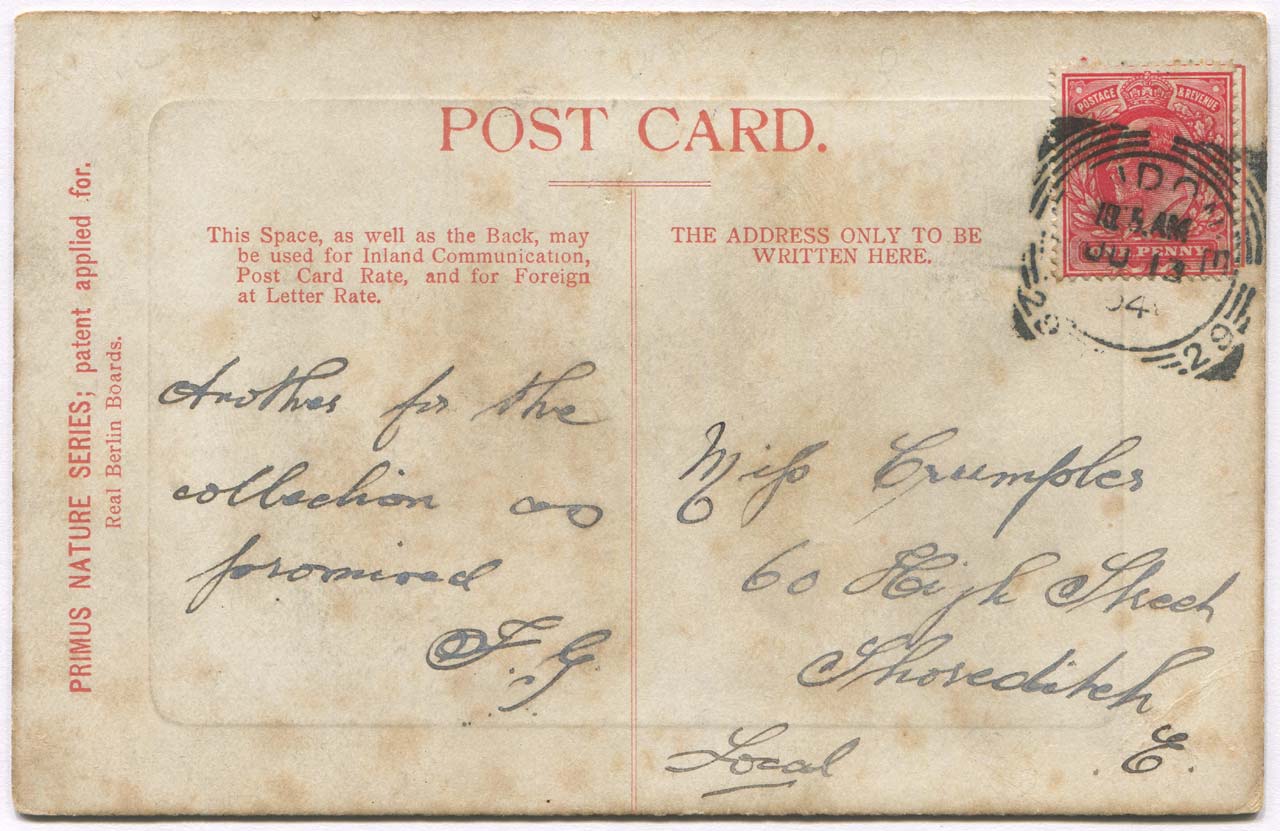 POST CARD.
PRIMUS NATURE SERIES; patent applied for.
Real Berlin Boards.
This Space, as well as the Back, may
be used for Inland Communication,
Post Card Rate, and for Foreign
at Letter Rate.
THE ADDRESS ONLY TO BE
WRITTEN HERE.
POSTAGE & REVENUE
PENNY
AM
JU 13
04
29
29
Another for the
collection as
promised
F. G.
Miss Crumpler
60 High Street
Shoreditch
Local E.